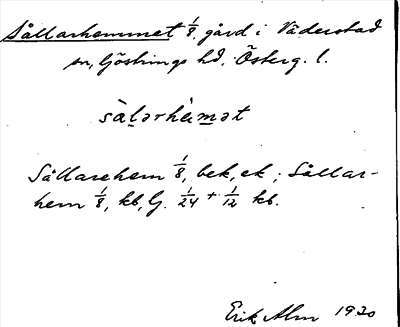 Sållarhemmet 1/8, gård i Väderstad
sn, Göstrings hd, Österg. l.
sàlərhèmət
Sållarehem 1/8, bek, ek; Sållar-
hem 1/8, kb, G. 1/24 + 1/12 kb.
Erik Alm 1920